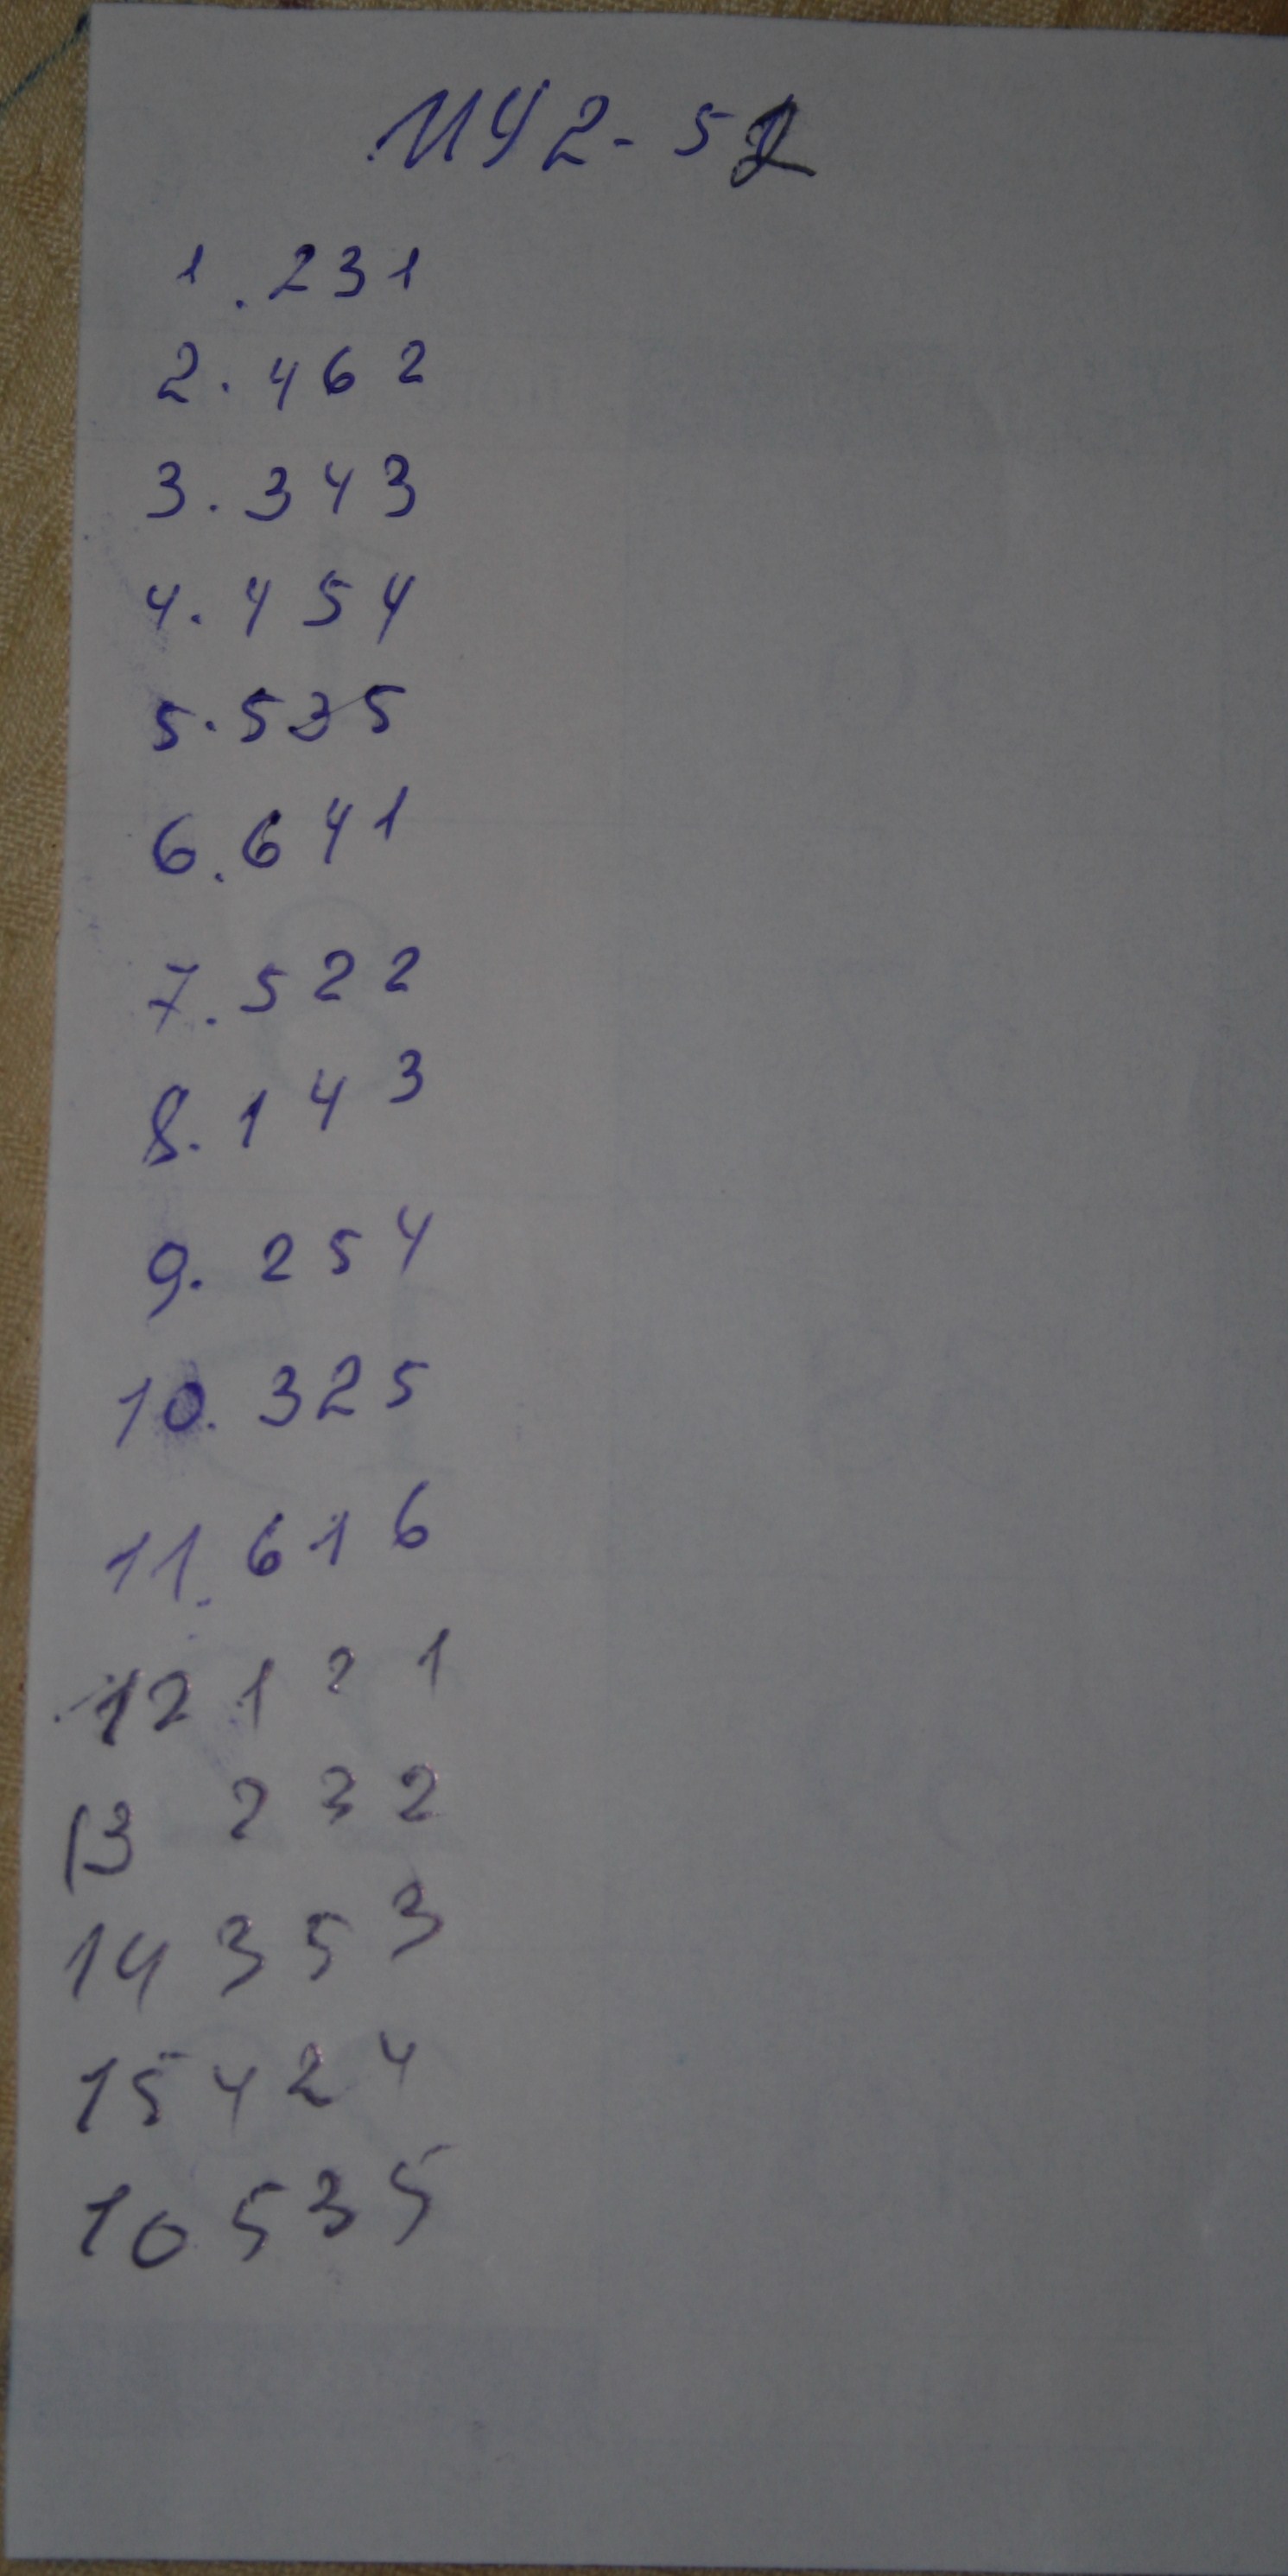 ИУ2-52
1. 231
2. 462
3. 343
4. 454
5. 535
6. 641
7. 522
8. 143
9. 254
10. 325
11. 616
12 121
13 232
14 353
15 424
16 535